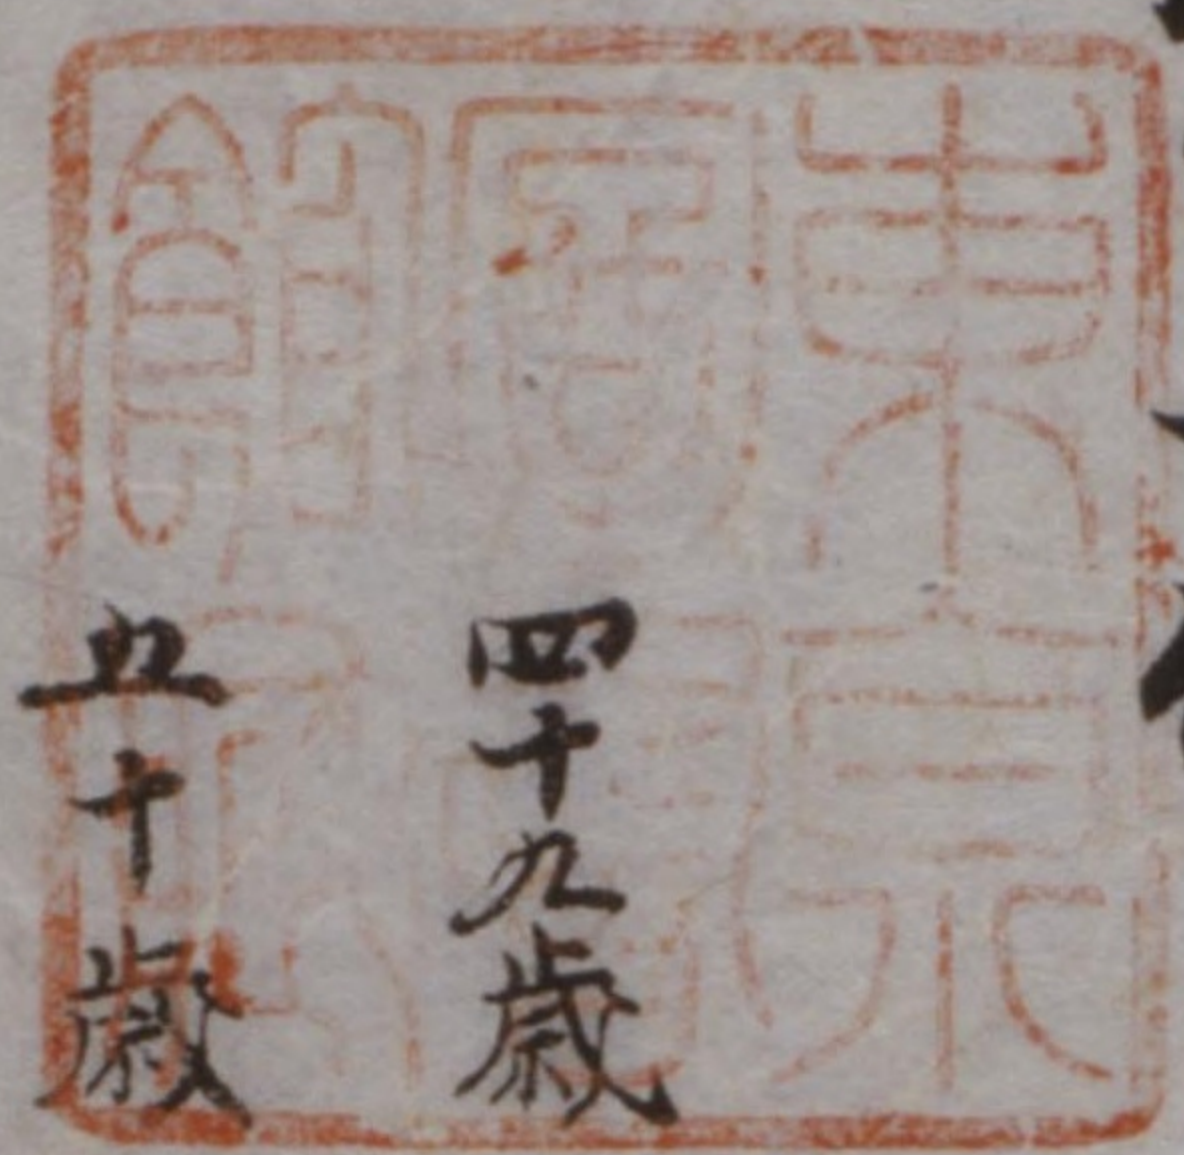 東京
圖書
館藏
四十九歳
五十歳